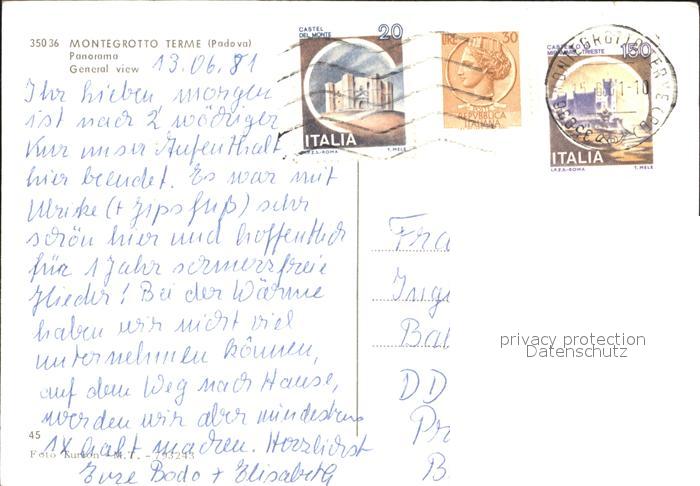 35036 MONTEGROTTO TERME (Padova)
Panorama
General view
13.06.81
Ihr Lieben, morgen
ist nach 2 wöchiger
Kur unser Aufenthalt
hier beendet. Es war mit
Ulrike (+ Gipsfuß) sehr
schön hier und hoffentlich
für 1 Jahr schmerzfreie
Glieder! Bei der Wärme
haben wir nicht viel
unternehmen können,
auf dem Weg nach Hause,
werden wir aber mindestens
1x halt machen. Herzlichst
Eure Bodo + Elisabeth
45
Foto Kunton - M.T. - 793243
CASTEL DEL MONTE 20
ITALIA
I.P.Z.S.-ROMA T. MELE
LIRE 30
REPVBBLICA
ITALIANA
CASTELLO MIRAMARE-TRIESTE 150
ITALIA
I.P.Z.S.-ROMA T. MELE
Fra
Inge
Ba
DD
B
privacy protection
Datenschutz